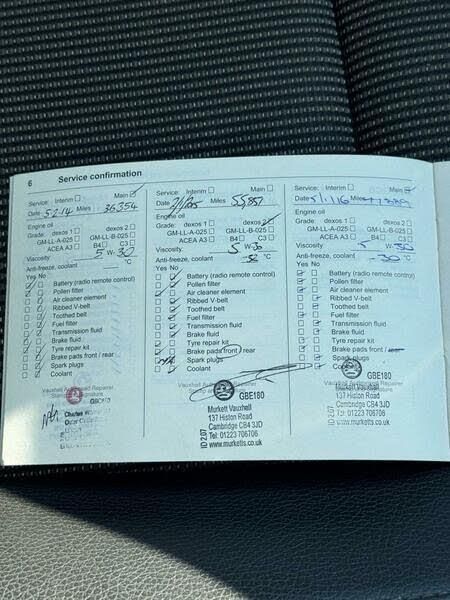 6 Service confirmation
Service: Interim Main
Date 5.2.14 Miles 36354
Engine oil
Grade: dexos 1 dexos 2
GM-LL-A-025 GM-LL-B-025
ACEA A3 B4 C3
Viscosity 5 W- 30
Anti-freeze, coolant °C
Yes No
Battery (radio remote control)
Pollen filter
Air cleaner element
Ribbed V-belt
Toothed belt
Fuel filter
Transmission fluid
Brake fluid
Tyre repair kit
Brake pads front / rear
Spark plugs
Coolant
Vauxhall Authorised Repairer
Service: Interim Main
Date Miles 55857
Engine oil
Grade: dexos 1 dexos 2
GM-LL-A-025 GM-LL-B-025
ACEA A3 B4 C3
Viscosity: 5 W- 30
Anti-freeze, coolant -32 °C
Yes No
Battery (radio remote control)
Pollen filter
Air cleaner element
Ribbed V-belt
Toothed belt
Fuel filter
Transmission fluid
Brake fluid
Tyre repair kit
Brake pads front / rear
Spark plugs
Coolant
GBE180
Murkett Vauxhall
137 Histon Road
Cambridge CB4 3JD
Tel: 01223 706706
www.murketts.co.uk
ID 2.07
Service: Interim Main
Date Miles
Engine oil
Grade: dexos 1 dexos 2
GM-LL-A-025 GM-LL-B-025
ACEA A3 B4 C3
Viscosity 5 W- 30
Anti-freeze, coolant -30 °C
Yes No
Battery (radio remote control)
Pollen filter
Air cleaner element
Ribbed V-belt
Toothed belt
Fuel filter
Transmission fluid
Brake fluid
Tyre repair kit
Brake pads front /
Spark plugs
Coolant
Vauxhall Authorised Repairer
GBE180
Murkett Vauxhall
137 Histon Road
Cambridge CB4 3JD
Tel: 01223 706706
www.murketts.co.uk
ID 2.07